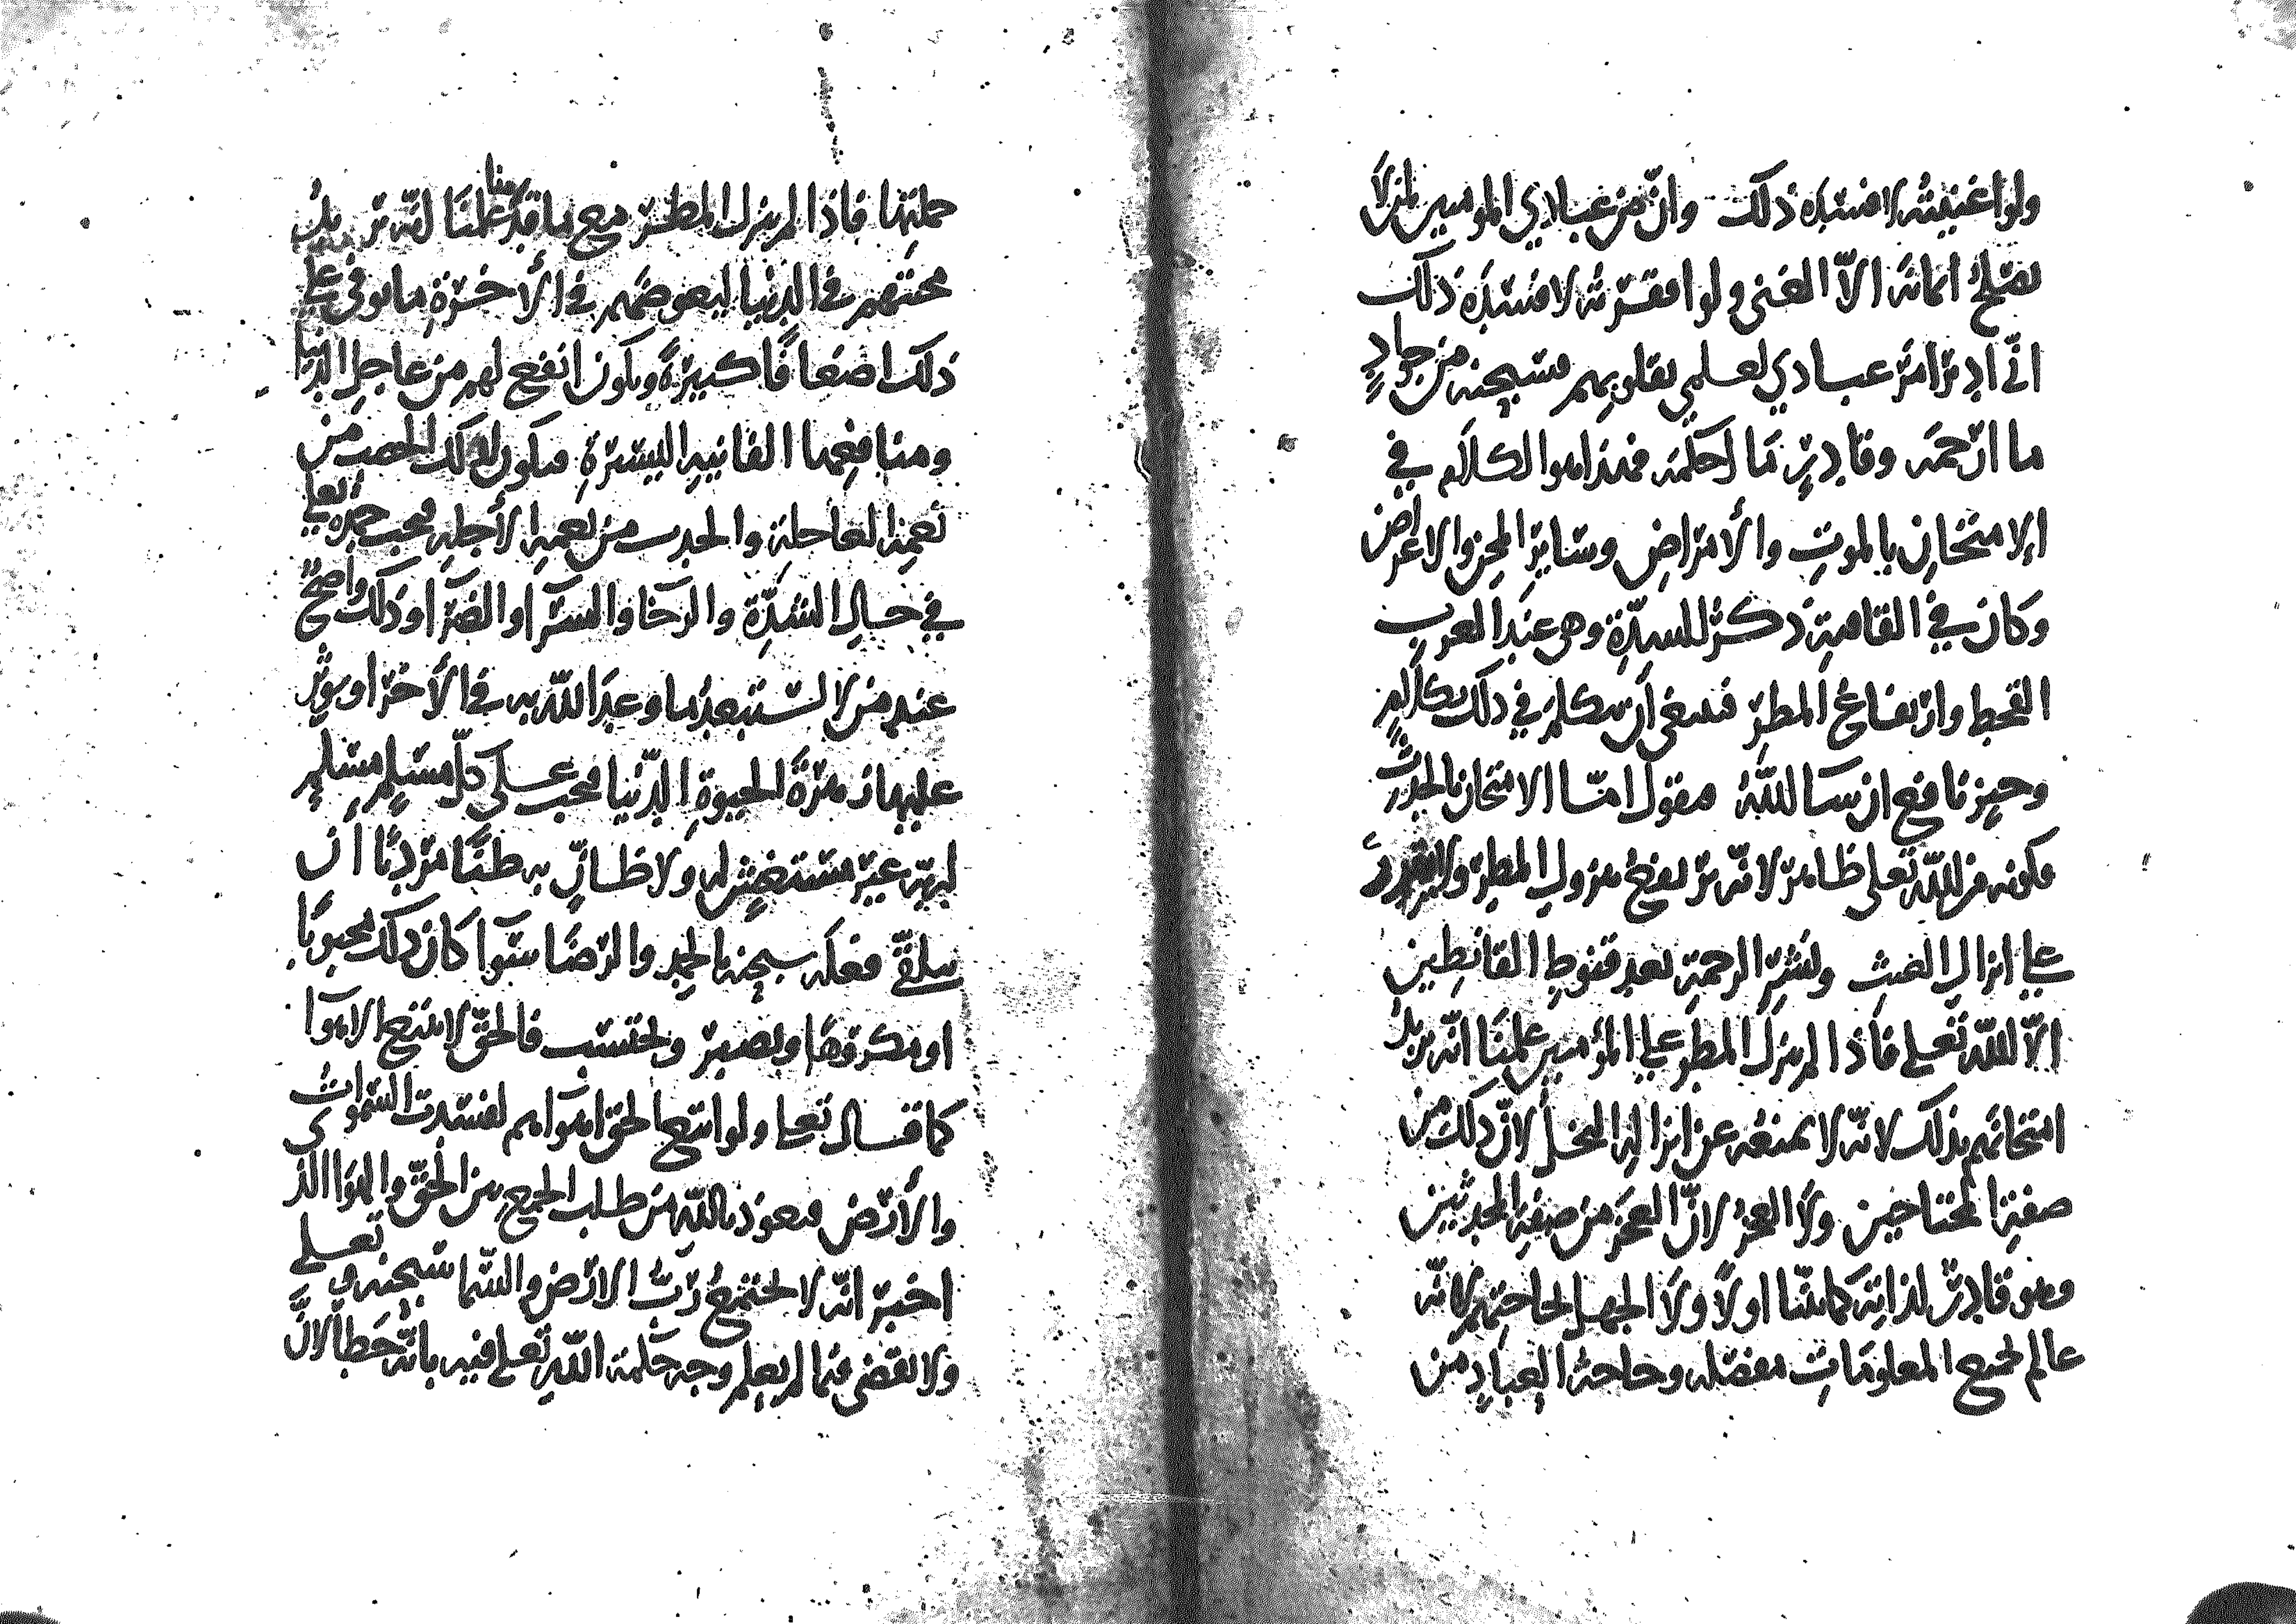 ولو اغنيته لافسده ذلك وانّ من عبادي المومنين لمن لا
يصلح ايمانه الّا الغنى ولو افقرته لافسده ذلك
انّي ادبر امر عبادي لعلمي بقلوبهم فسبحنه من جوادٍ
ما ارحمه وقادرٍ ما احكمه فهذا هوا الكلام في
الامتحان بالموتِ والأمراضِ وسايرِ المحن والاعراض
وكان في القاصةِ ذكرُ الشدّةِ وهي عند العربِ
القحط وارتفاعُ المطرِ فينبغي أن نتكلم في ذلك بكلامٍ
وجيز نافع ان شا اللّهُ فنقول امّا الامتحان بالجدب
فكونه من اللّه تعلى ظاهر لانّه لا يقدر على نزول المطر
على انزال الغيثِ ونشرِ الرحمةِ بعد قنوطِ القانطين
الّا اللّه تعلى فاذا لم ينزل المطر على المؤمنين علمنا انّه يريدُ
امتحانهم بذلك لانّه لا يمنعه عن انزاله البخلُ لانّ ذلك من
صفةِ المحتاجين ولا العجزُ لانّ العجز من صفةِ المحدثين
وهو قادرٌ لذاته كما بيّنا اولًا ولا الجهل لحاجتهم لانّه
عالم بجميع المعلوماتِ مفصّله وحاجة العبادِ من
جملتها فاذا لم ينزل المطر مع ما قدمنا علمنا انّه يريدُ
محنتهم في الدنيا ليعوضهم في الأخرةِ ما يوفي على
ذلك اضعافًا كبيرةً ويكون انفع لهم من عاجلِ الدنيا
ومنافعها الفانيه اليسيرةِ فيكون لذلك الخصب من
نعمه العاجلة والجدب من نعمه الأجله فيجب حمده تعلى
في حالِ الشدّة والرخا والسرّا والضرّا وذلك واضحٌ
عند من لا يستبعدُ ما وعد اللّه به في الأخرا ويوثر
عليها زهرةَ الحيوةِ الدّنيا فيجب على كلّ مسلمٍ مسلمٍ
لربّه غير مستغشٍ له ولا ظانٍّ به ظنًّا مرديًا أن
يتلقّى فعله سبحنه بالحمد والرضا سوا كان ذلك محبوبًا
او مكروهًا ويصبر ويحتسب فالحق لا يتبع الاهوا
كما قال تعلى ولو اتبع الحق اهواهم لفسدت السموات
والأرض فنعوذ باللّه من طلب الجمع بين الحقّ والهوا الذى
اخبر انّه لا يجتمعُ ربُّ الارض والسّما سبحنه وتعلى
ولا يقضى فيما لم يعلم وجه حكمة اللّه تعلى فيه بانّه خطأ لانّ